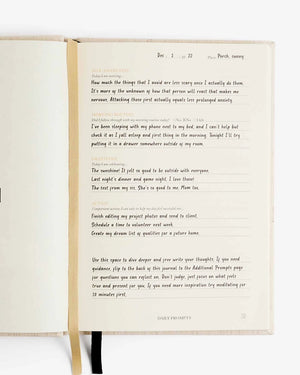 Dec 1 22 Place: Porch, sunny
Today I am noticing...
How much the things that I avoid are less scary once I actually do them.
It's more of the unknown of how that person will react that makes me
nervous. Attacking these first actually equals less prolonged anxiety.
I've been sleeping with my phone next to my bed, and I can't help but
check it as I fall asleep and first thing in the morning. Tonight I'll try
putting it in a drawer somewhere outside of my room.
GRATITUDE
Today I am celebrating...
The sunshine! It felt so good to be outside with everyone.
Last night's dinner and game night. I love those!
The text from my sis. She's so good to me. Mom too.
Finish editing my project photos and send to client.
Schedule a time to volunteer next week.
Create my dream list of qualities for a future home.
Use this space to dive deeper and free write your thoughts. If you need
guidance, flip to the back of this journal to the Additional Prompts page
for questions you can reflect on. Don't judge, just focus on what feels
true and present for you. If you need more inspiration try meditating for
10 minutes first.
DAILY PROMPTS